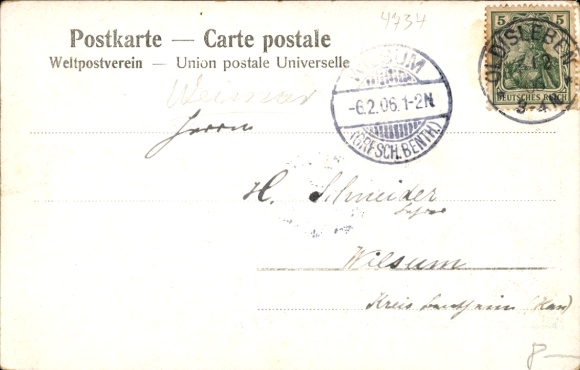 4734
Postkarte — Carte postale
Weltpostverein — Union postale Universelle
5 5
DEUTSCHES REICH
OLDISLEBEN
12
3-4N
WILSUM
-6.2.06.1-2N
(GRFSCH.BENTH.)
Weimar
Herrn
H. Schneider
Wilsum
Kreis Bentheim (Han)
8—